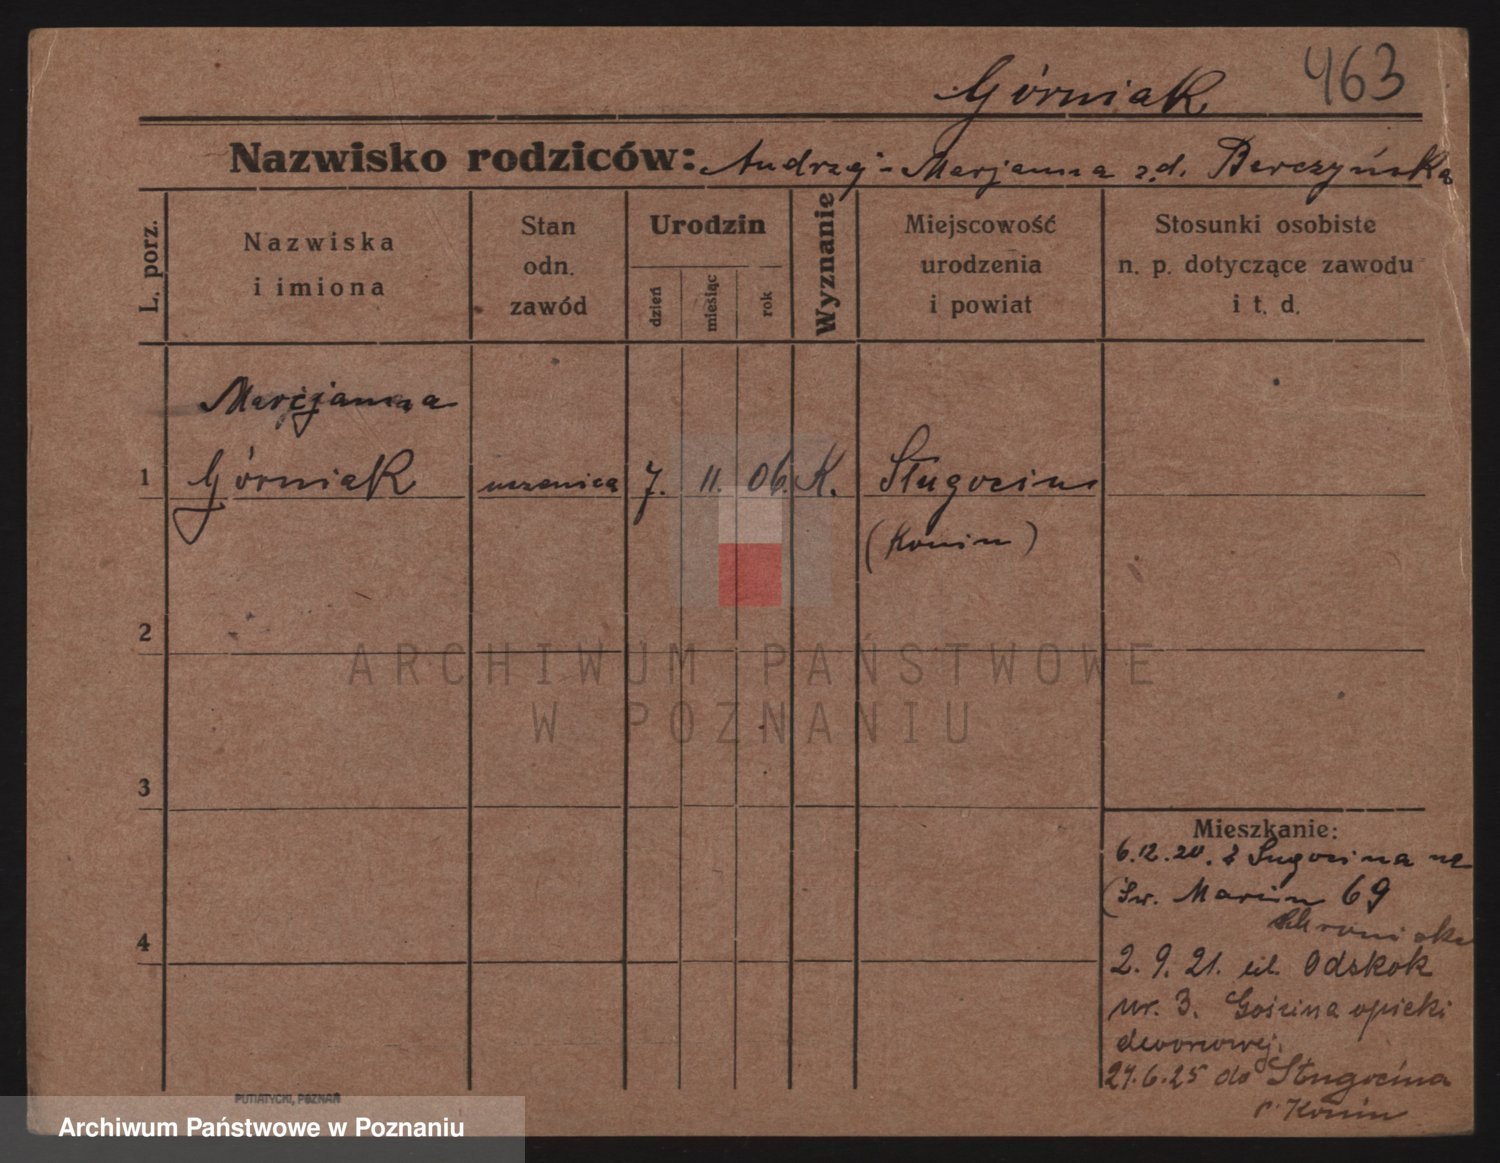 Górniak 463
Nazwisko rodziców: Andrzej - Marjanna z d. Berczyńska
L. porz.
Nazwiska
i imiona
Stan
odn.
zawód
Urodzin
dzień
miesiąc
rok
Wyznanie
Miejscowość
urodzenia
i powiat
Stosunki osobiste
n. p. dotyczące zawodu
i t. d.
Marcjanna
1 Górniak uczenica 7. 11. 06. K. Sługocin
(Konin)
2
3
4
ARCHIWUM PAŃSTWOWE
W POZNANIU
Mieszkanie:
6.12.20. z Sugocina na
Św. Marcin 69
2. 9. 21. ul. Odskok
nr. 3. opieki
dworcowej.
24.6.25 do Sługocina
p. Konin
PUTIATYCKI, POZNAŃ
Archiwum Państwowe w Poznaniu